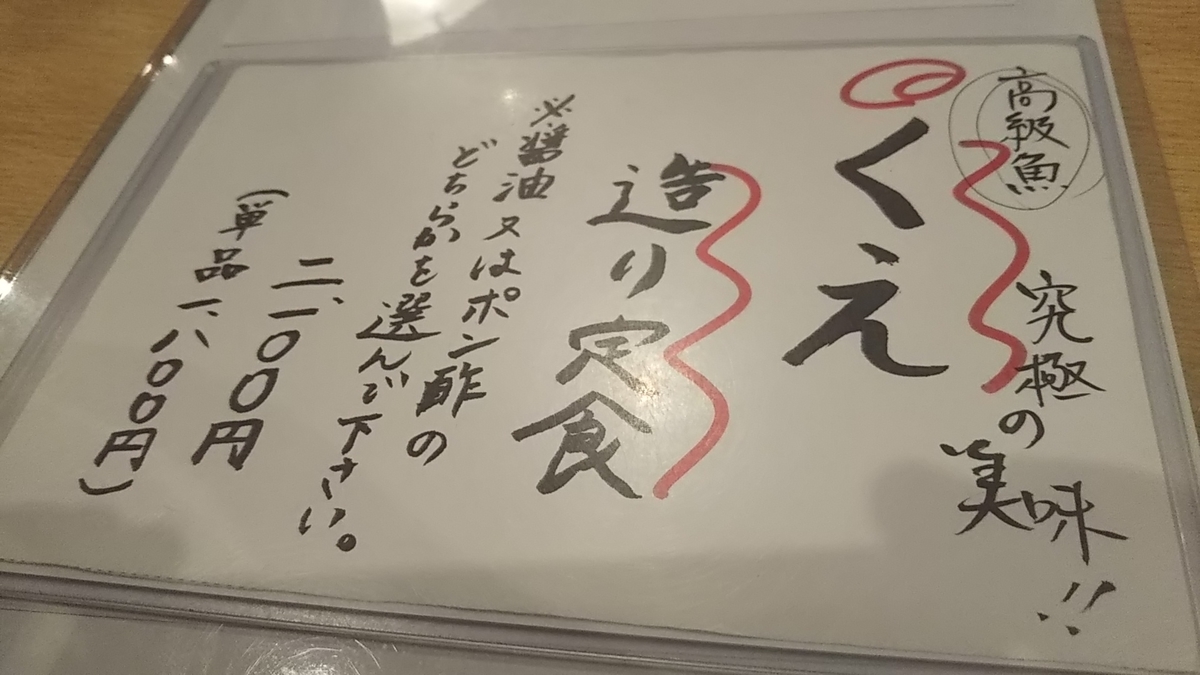 高級魚
究極の美味!!
くえ
造り定食
※醤油又はポン酢の
どちらかを選んで下さい。
二、一〇〇円
(単品一、八〇〇円)